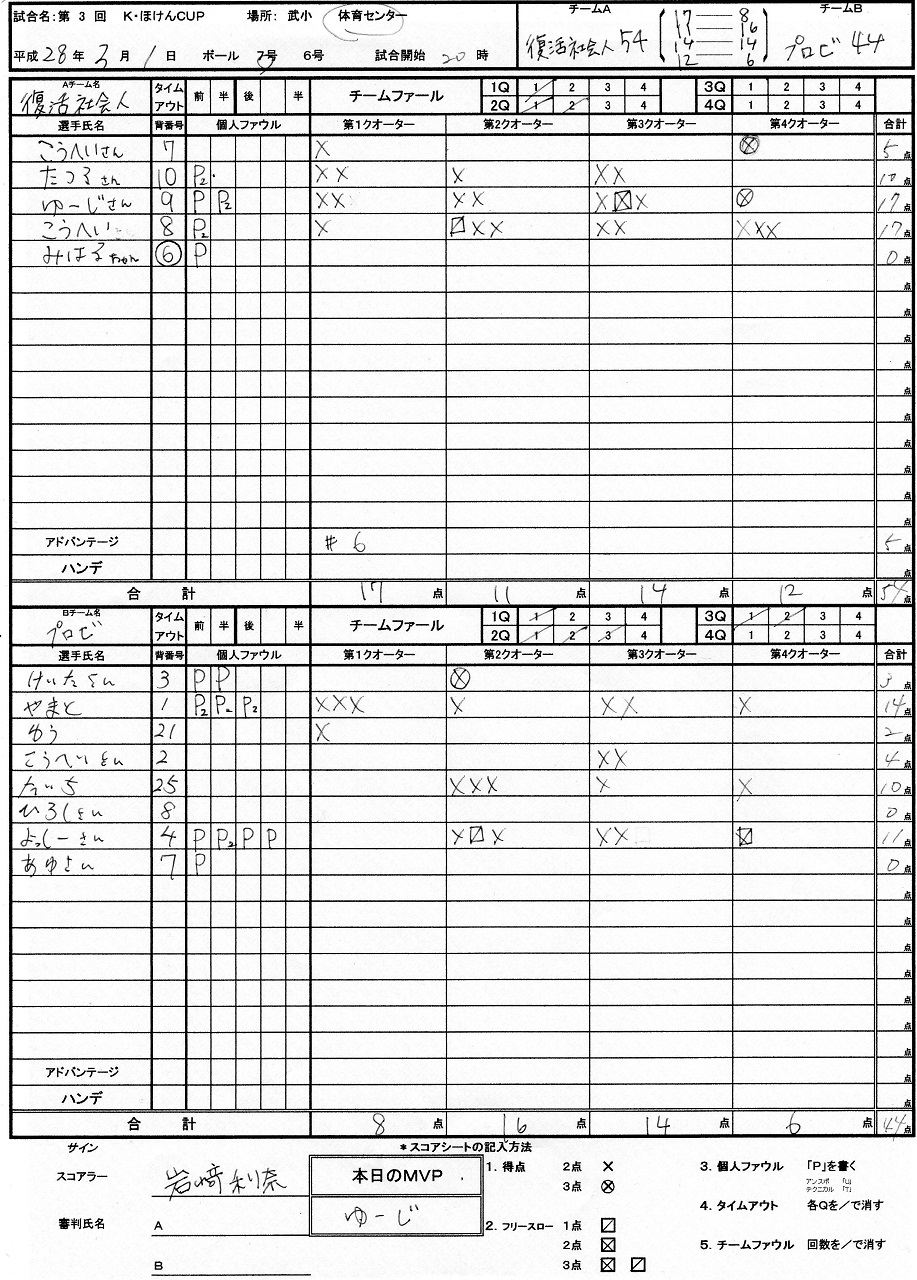 試合名：第 3 回 K・ほけんCUP 場所： 武小 体育センター
チームA 復活社会人 54 チームB プロビ 44
17 ― 8
11 ― 16
14 ― 14
12 6
平成 28 年 3 月 1 日 ボール 7号 6号 試合開始 20 時
Aチーム名 復活社会人 タイムアウト 前 半 後 半 チームファール 1Q 1 2 3 4 3Q 1 2 3 4
2Q 1 2 3 4 4Q 1 2 3 4
選手氏名 背番号 個人ファウル 第1クオーター 第2クオーター 第3クオーター 第4クオーター 合計
こうへいさん 7 X ⊗ 5点
たつるさん 10 P2 XX X XX 10点
ゆーじさん 9 P P2 XX XX X☒X ⊗ 17点
こうへい 8 P2 X ⧄XX XX XXX 17点
みはるちゃん ⑥ P 0点
点
点
点
点
点
点
点
点
点
点
アドバンテージ # 6 5点
ハンデ 点
合 計 17 点 11 点 14 点 12 点 54点
Bチーム名 プロビ タイムアウト 前 半 後 半 チームファール 1Q 1 2 3 4 3Q 1 2 3 4
2Q 1 2 3 4 4Q 1 2 3 4
選手氏名 背番号 個人ファウル 第1クオーター 第2クオーター 第3クオーター 第4クオーター 合計
けいたくん 3 P P ⊗ 3点
やまと 1 P2 P2 P2 XXX X XX X 14点
ゆう 21 X 2点
こうへいさん 2 XX 4点
たいち 25 XXX X X 10点
ひろしさん 8 0点
よっしーさん 4 P P2 P P X⧄X XX ☒ 11点
あゆさん 7 P 0点
点
点
点
点
点
点
点
アドバンテージ 点
ハンデ 点
合 計 8 点 16 点 14 点 6 点 44点
サイン ＊スコアシートの記入方法
スコアラー 岩﨑利奈 本日のMVP 1. 得点 2点 × 3. 個人ファウル 「P」を書く
3点 ⊗ アンスポ 「U」
テクニカル 「T」
ゆーじ 4. タイムアウト 各Qを／で消す
審判氏名 A 2. フリースロー 1点 ⧄
2点 ☒ 5. チームファウル 回数を／で消す
B 3点 ☒ ⧄